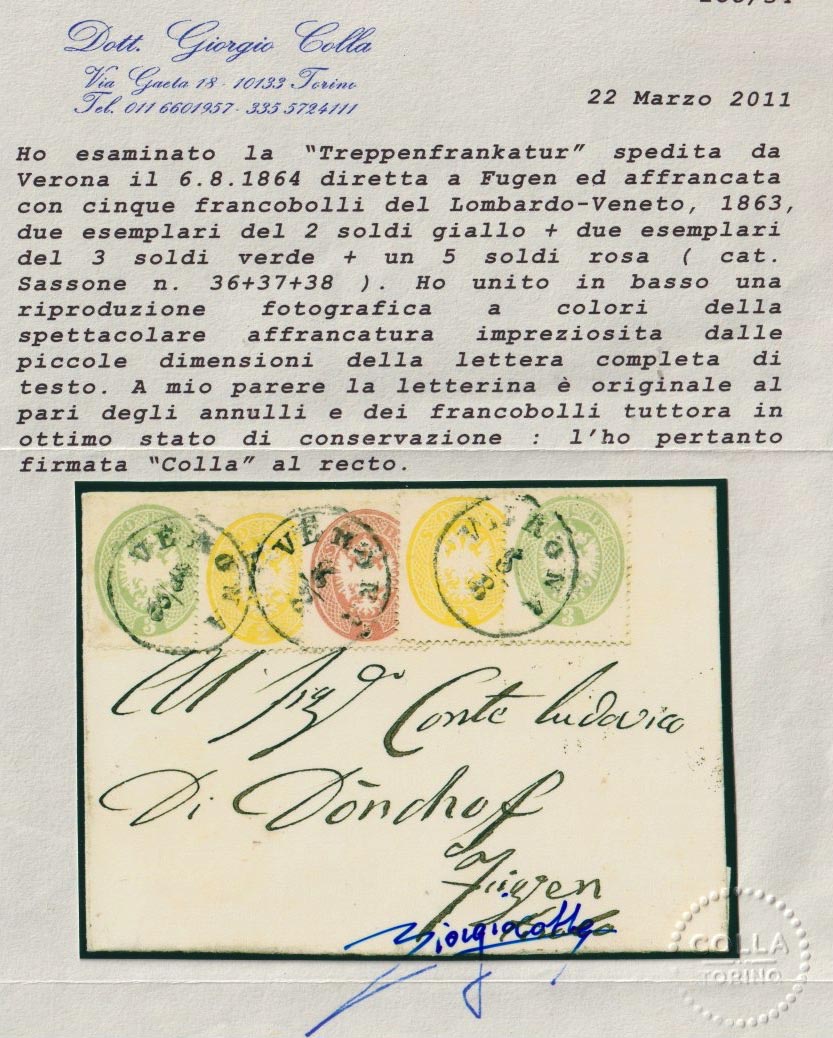 Dott. Giorgio Colla
Via Gaeta 18 - 10133 Torino
Tel. 011 6601957 - 335 5724111
22 Marzo 2011
Ho esaminato la “Treppenfrankatur” spedita da
Verona il 6.8.1864 diretta a Fugen ed affrancata
con cinque francobolli del Lombardo-Veneto, 1863,
due esemplari del 2 soldi giallo + due esemplari
del 3 soldi verde + un 5 soldi rosa ( cat.
Sassone n. 36+37+38 ). Ho unito in basso una
riproduzione fotografica a colori della
spettacolare affrancatura impreziosita dalle
piccole dimensioni della lettera completa di
testo. A mio parere la letterina è originale al
pari degli annulli e dei francobolli tuttora in
ottimo stato di conservazione : l’ho pertanto
firmata “Colla” al recto.
VERONA
VERONA
VERONA
3
2
3
Conte Ludovico
Di Dönchof
Fügen
Giorgio Colla
COLLA
TORINO